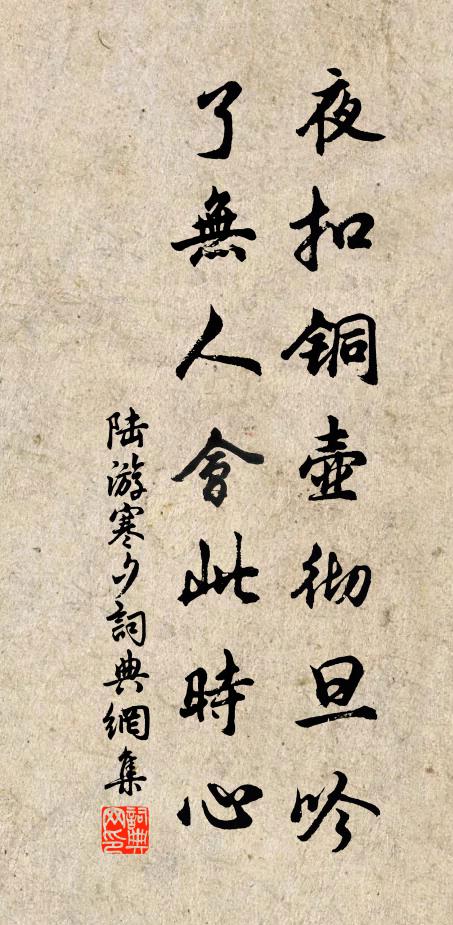 夜扣铜壺彻旦吟
了無人會此時心
陆游寒夕詞典網集
詞典网印